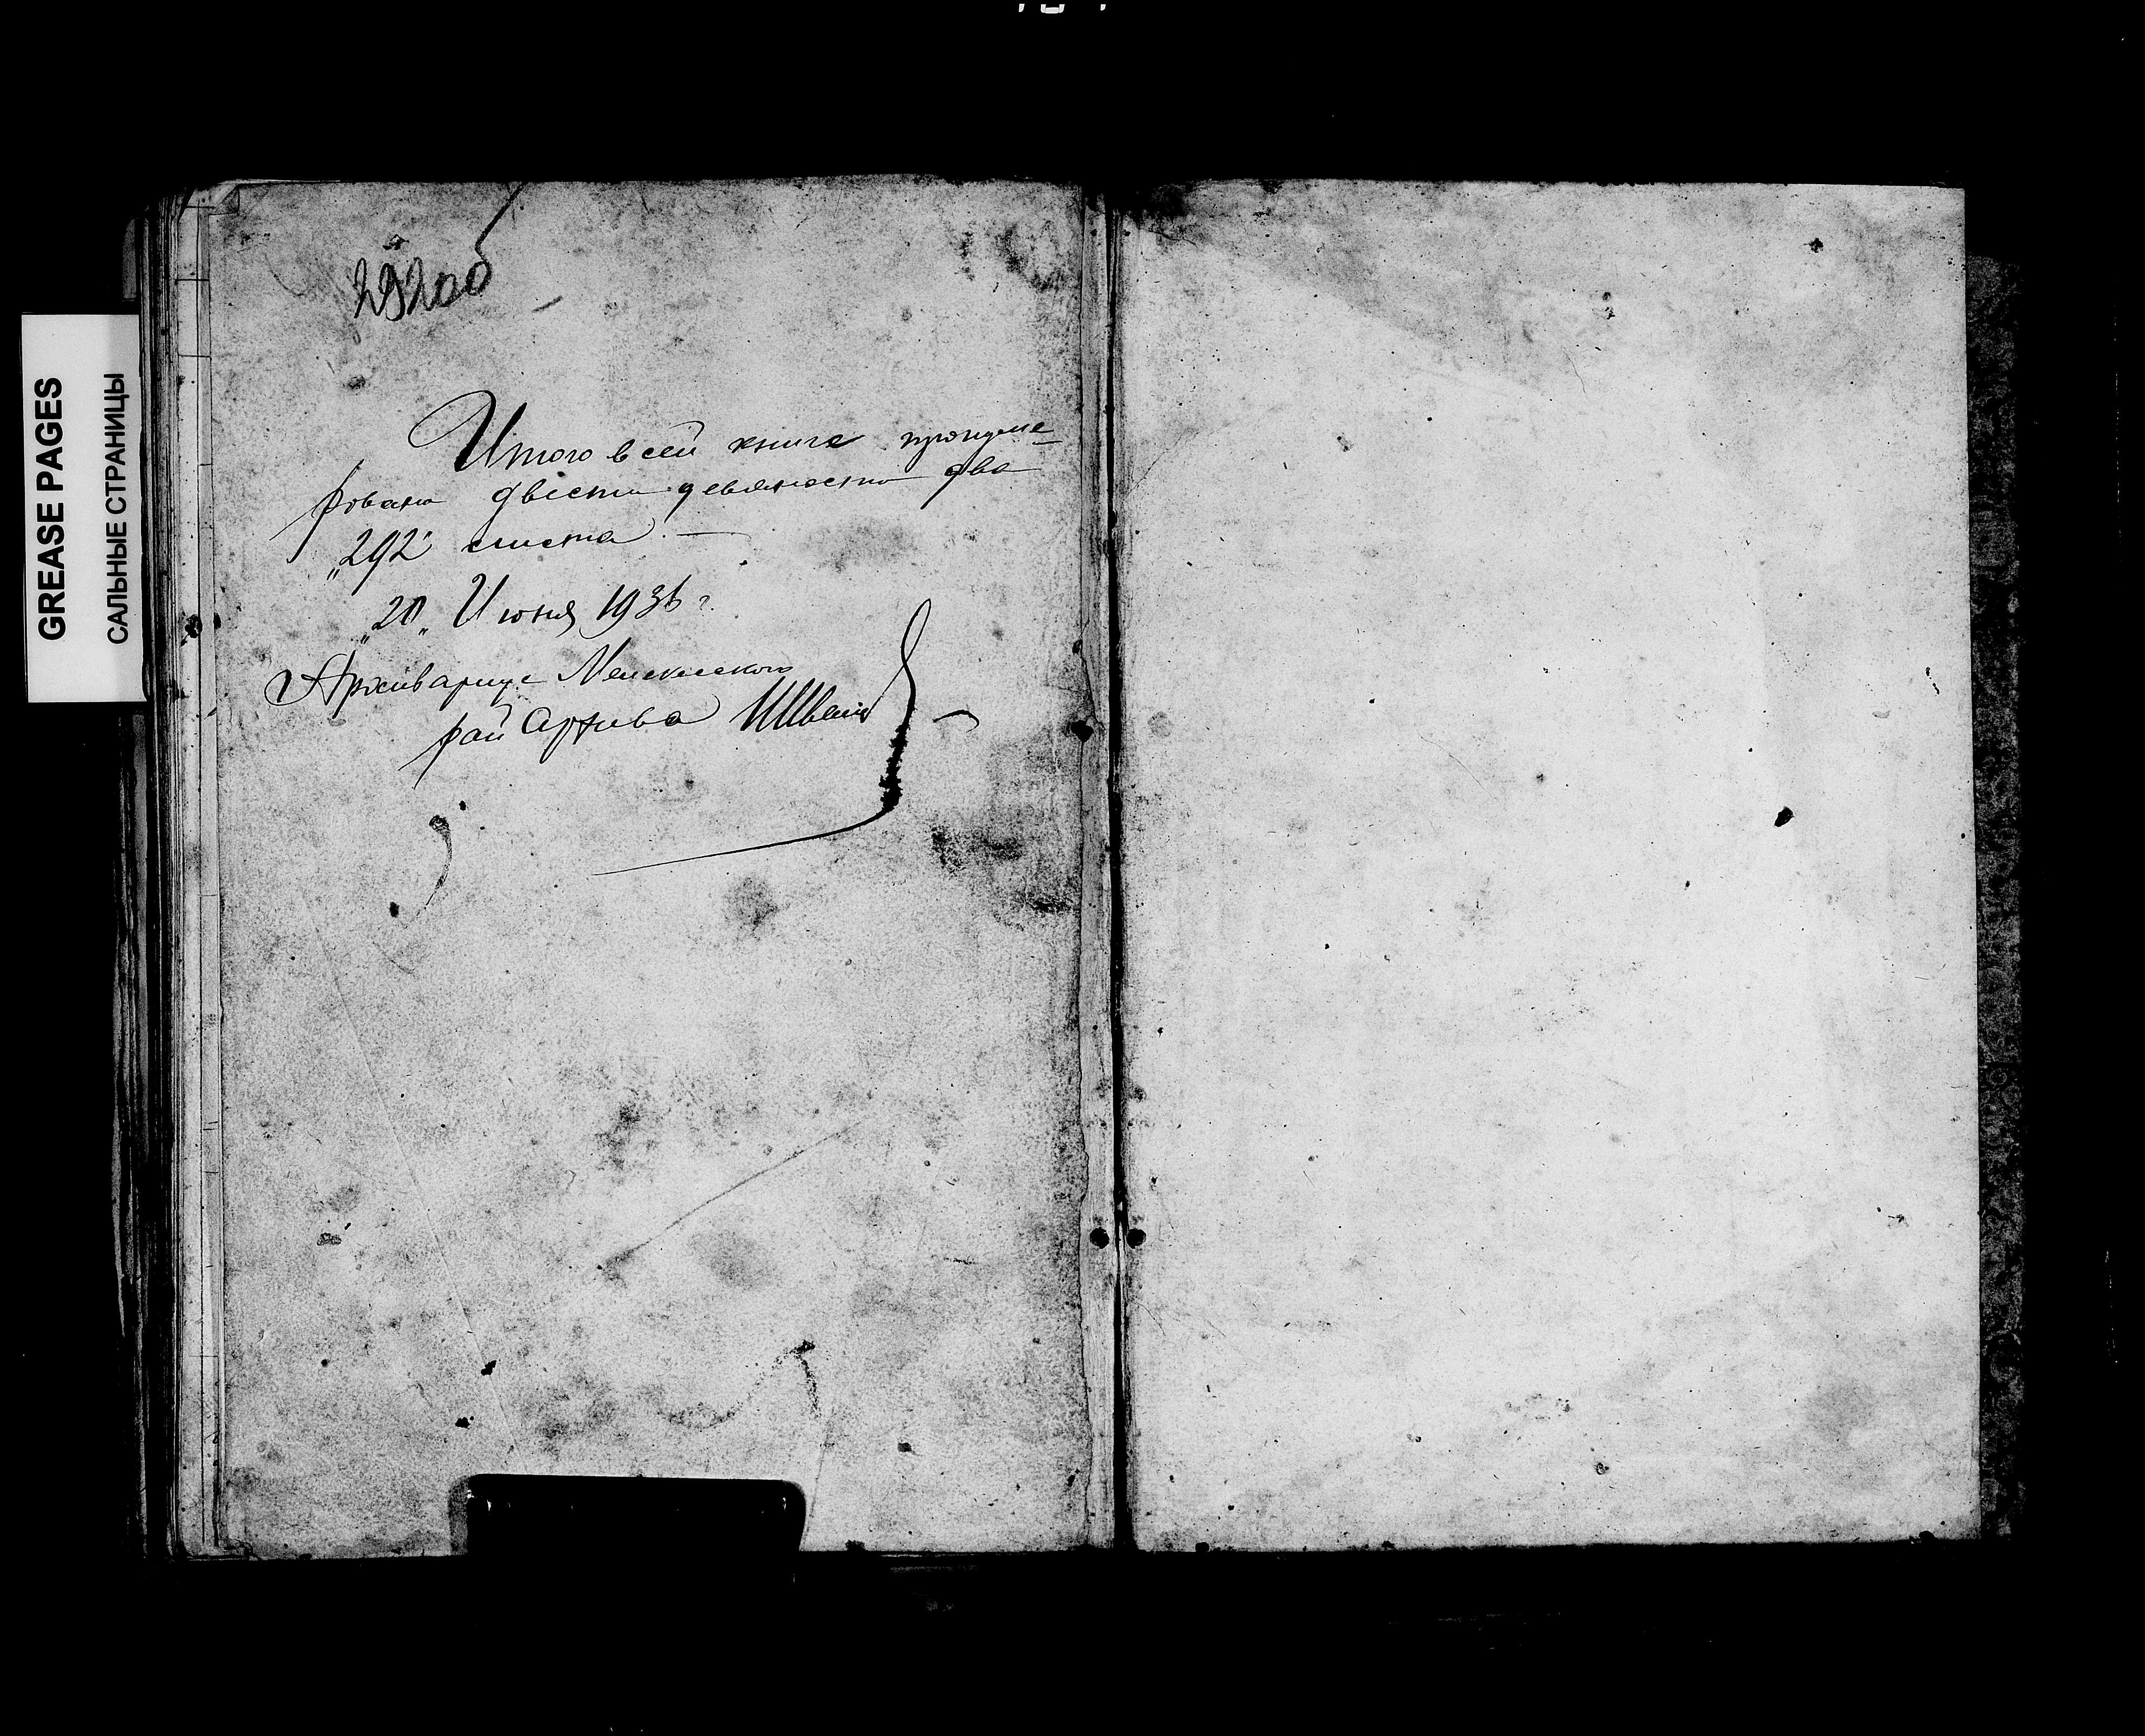 GREASE PAGES
САЛЬНЫЕ СТРАНИЦЫ
292об
Итого в сей книге пронуме-
ровано двести девяносто два
„292" листа. —
„20„ Июня 1936 г.
Архивариус Мелекесского
рай Архива